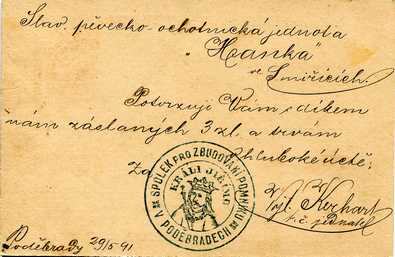 Slav. pěvecko-ochotnická jednota
"Hanka"
ve Smiřicích.
Potvrzuji Vám s díkem
nám zaslaných 3 zl. a trvám
v hluboké úctě:
Za
SPOLEK PRO ZBUDOVÁNÍ POMNÍKU
KRÁLI JIŘÍMU
V PODĚBRADECH
Kochart
t. č. jednatel
Poděbrady 29/5 91